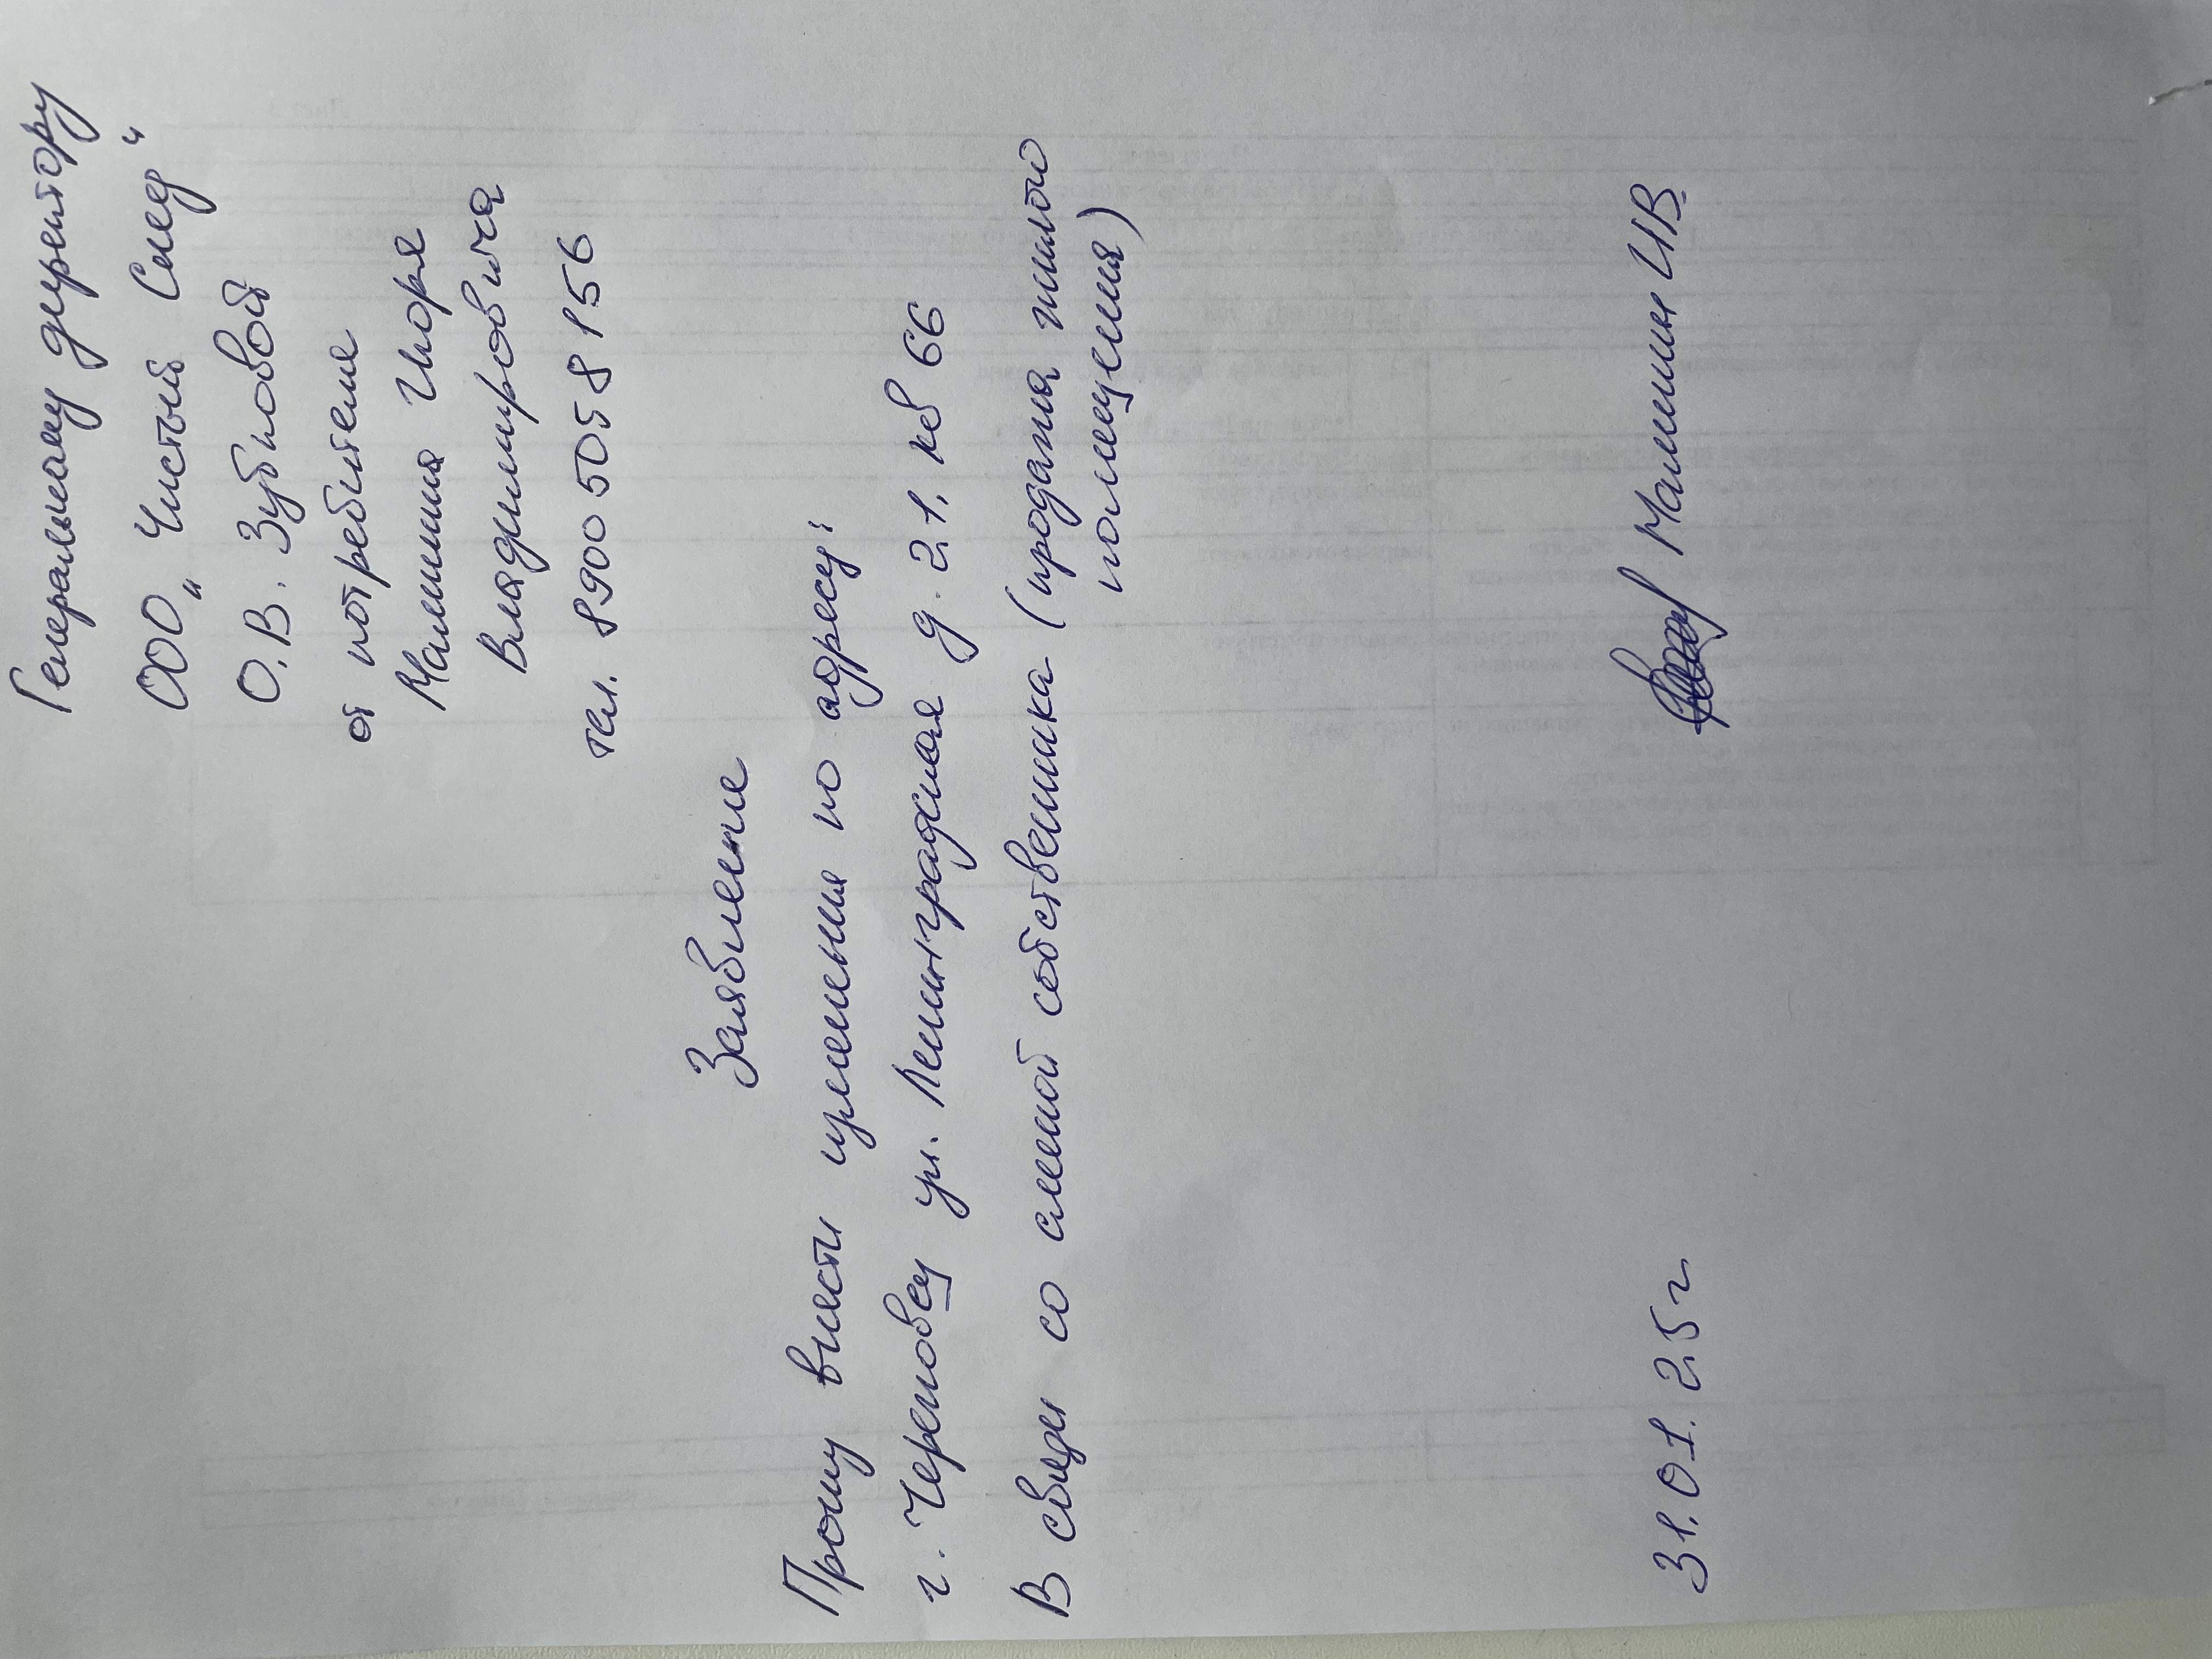 Генеральному директору
ООО „Чистый След"
О.В. Зубковой
от потребителя
Малинина Игоря
Владимировича
тел. 8900 505 8 156
Заявление
Прошу внести изменения по адресу:
г. Череповец ул. Ленинградская д. 21, кв 66
В связи со сменой собственника (продажа жилого
помещения)
31.01.25г Малинин ИВ